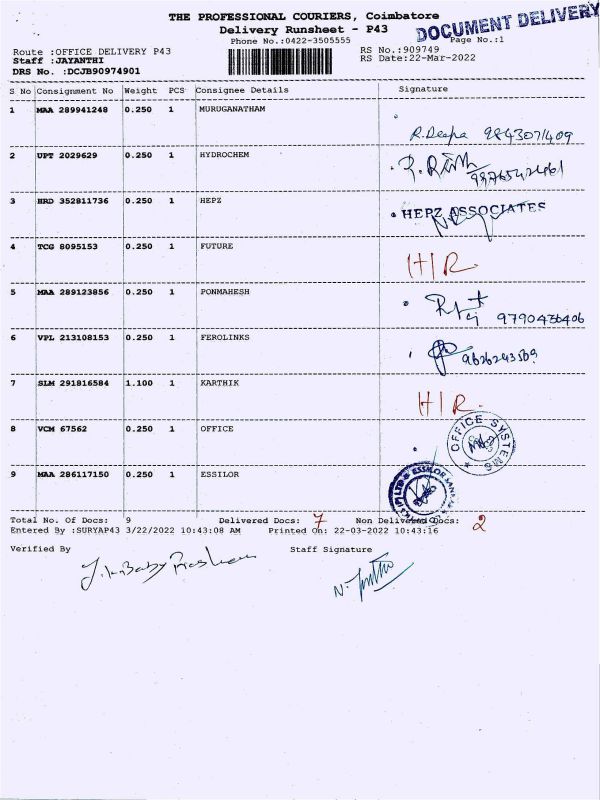 THE PROFESSIONAL COURIERS, Coimbatore
DOCUMENT DELIVERY
Delivery Runsheet - P43
Phone No.:0422-3505555
Page No.:1
Route :OFFICE DELIVERY P43
RS No.:909749
Staff :JAYANTHI
RS Date:22-Mar-2022
DRS No. :DCJB90974901
S No Consignment No Weight PCS Consignee Details Signature
1 MAA 289941248 0.250 1 MURUGANATHAM
R.Deepa 9843071409
2 UPT 2029629 0.250 1 HYDROCHEM
3 HRD 352811736 0.250 1 HEPZ
HEPZ ASSOCIATES
4 TCG 8095153 0.250 1 FUTURE
H/R.
5 MAA 289123856 0.250 1 PONMAHESH
9790436406
6 VPL 213108153 0.250 1 FEROLINKS
9626243569
7 SLM 291816584 1.100 1 KARTHIK
H/R.
8 VCM 67562 0.250 1 OFFICE
OFFICE SYSTEMS
9 MAA 286117150 0.250 1 ESSILOR
Total No. Of Docs: 9 Delivered Docs: 7 Non Delivered Docs: 2
Entered By :SURYAP43 3/22/2022 10:43:08 AM Printed On: 22-03-2022 10:43:16
Verified By Staff Signature